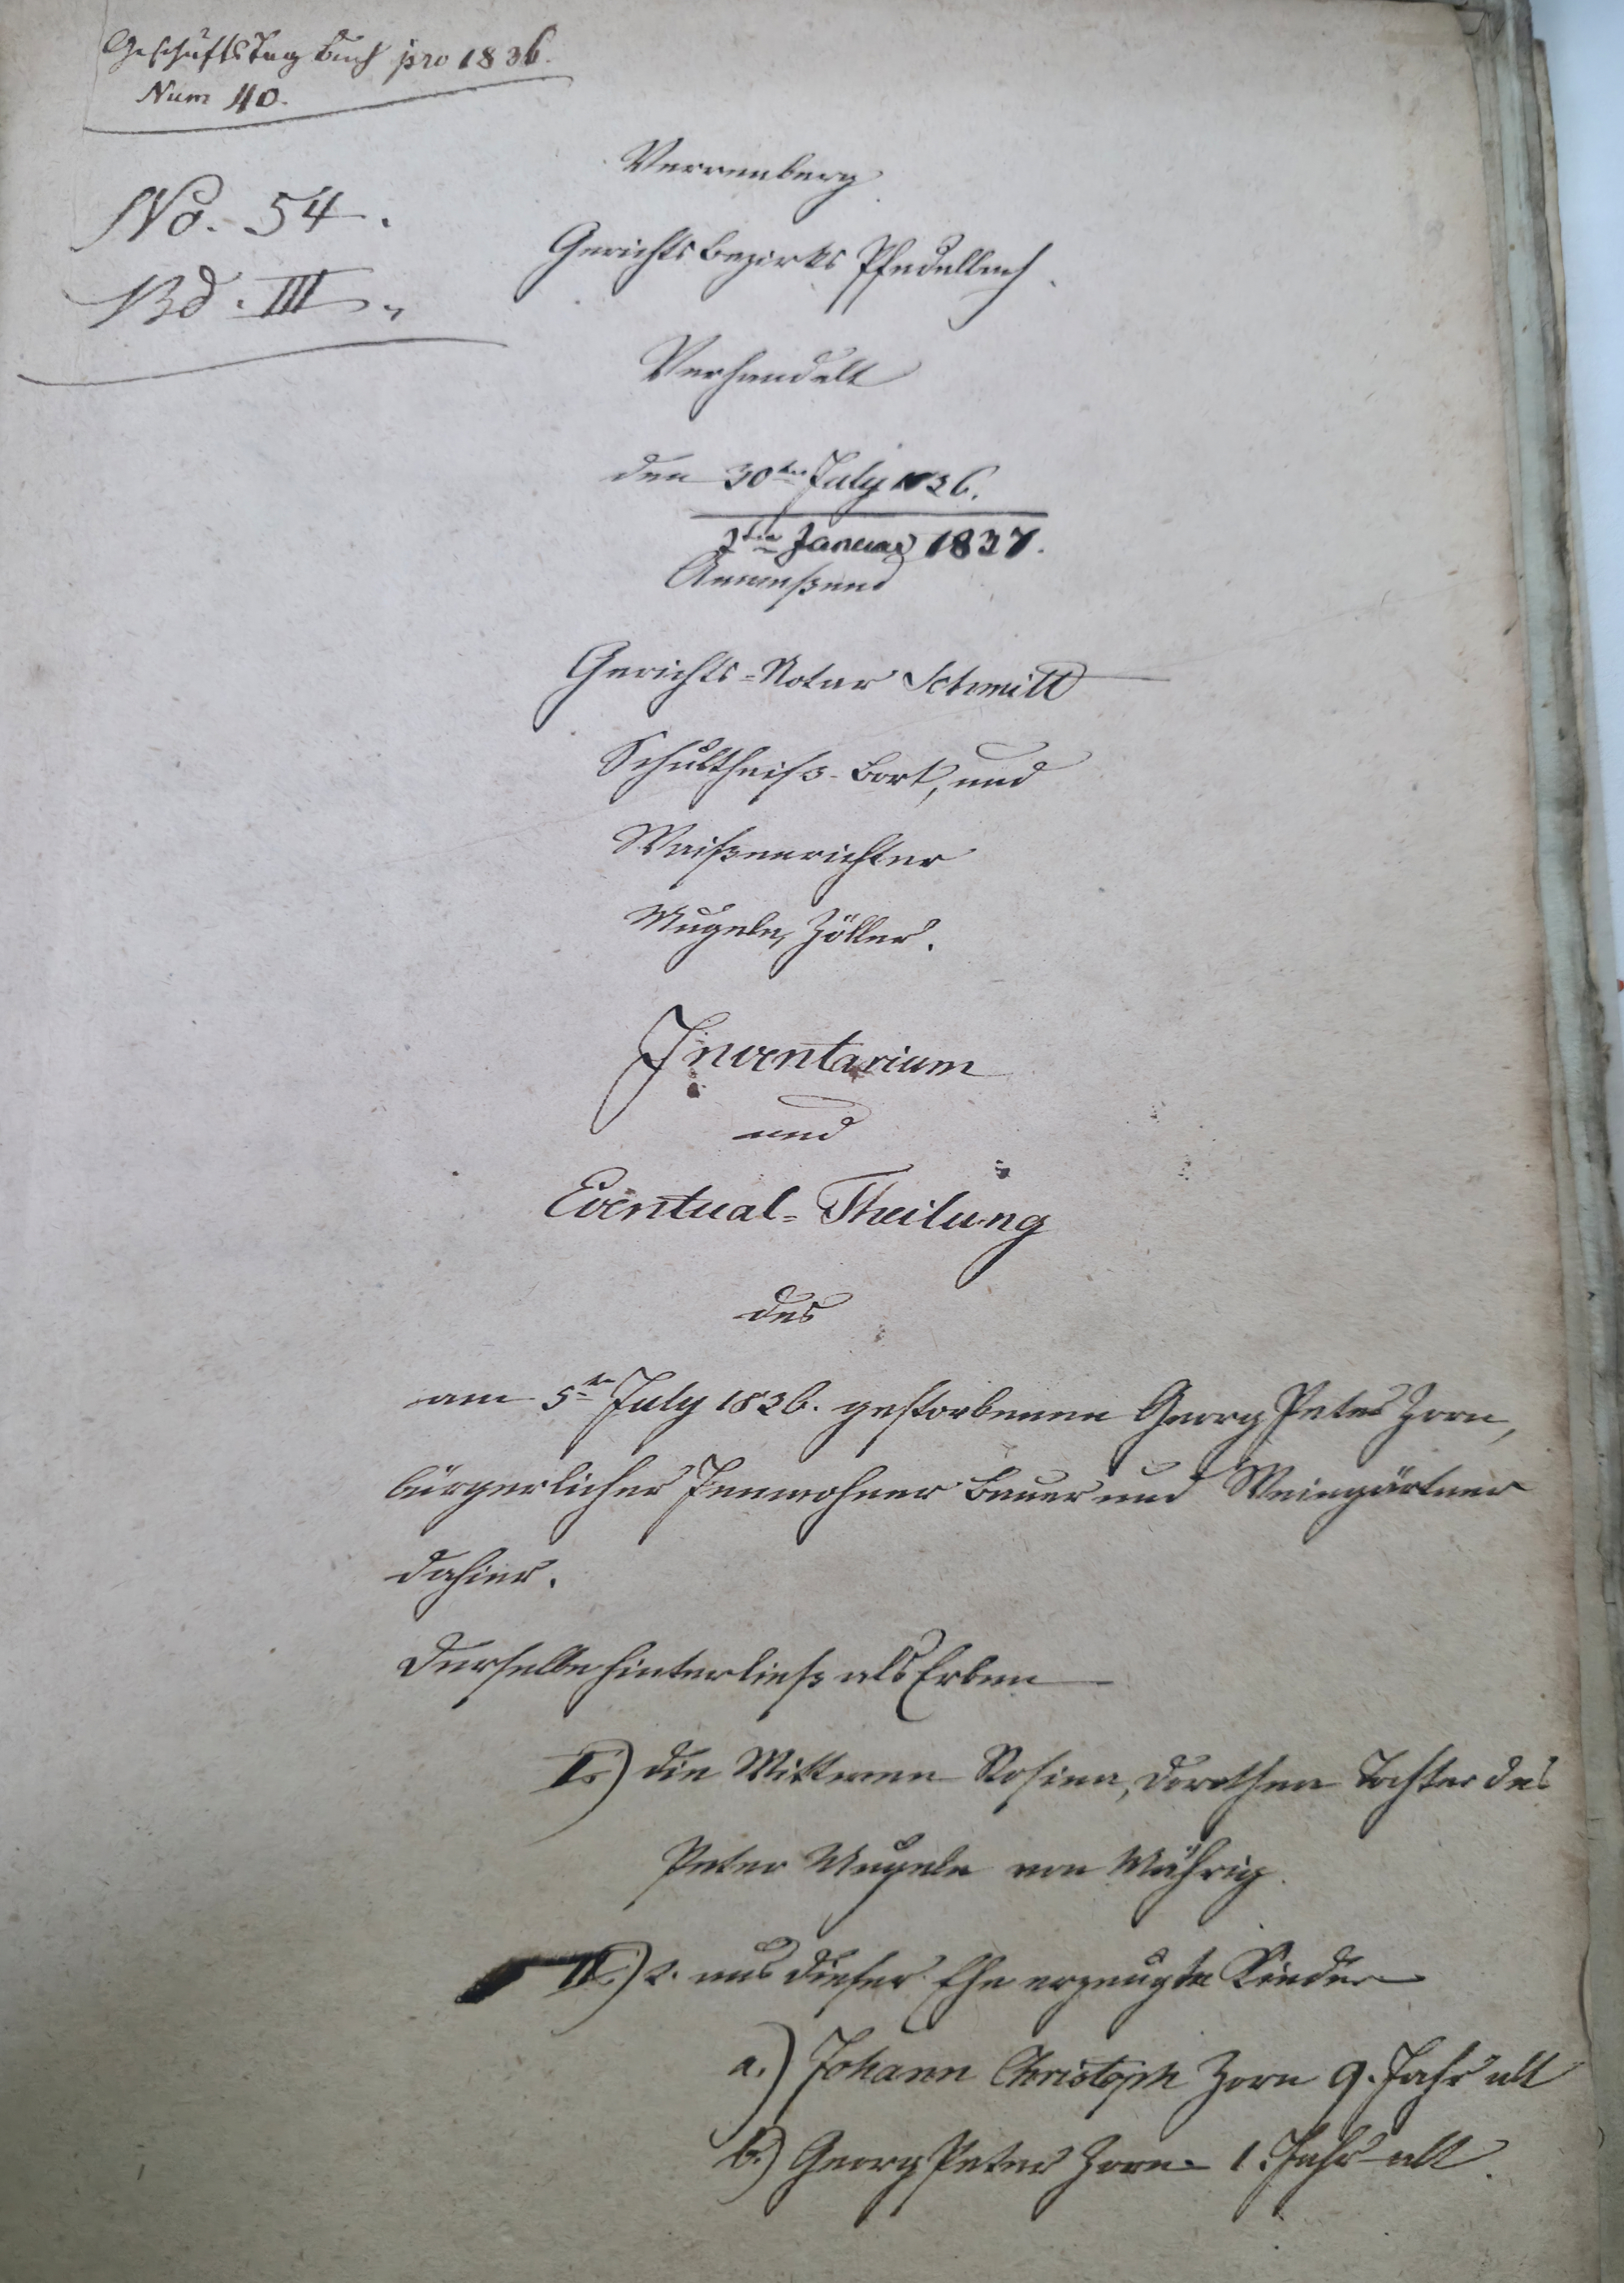 Geschäfts Tag Buch pro 1836.
Num 40.
No. 54.
Bd. III.
Verrenberg
Gerichtsbezirks Pfedelbach.
Verhandelt
den 30ten July 1836.
Januar 1837.
Anweßend
Gerichts-Notar Schmitt
Schultheiß Bort, und
Waißenrichter
Mugele, Zöller.
Inventarium
und
Eventual-Theilung
des
am 5ten July 1836. gestorbenen Georg Peter Zorn,
bürgerlicher Innwohner Bauer und Weingärtner
dahier.
Derselbe hinterließ als Erben
I.) die Wittwe Rosina, Dorothea Tochter des
Peter Mugele von
II.) 2. aus dieser Ehe erzeugte Kinder
a.) Johann Christoph Zorn 9. Jahr alt
b.) Georg Peter Zorn 1. Jahr alt.